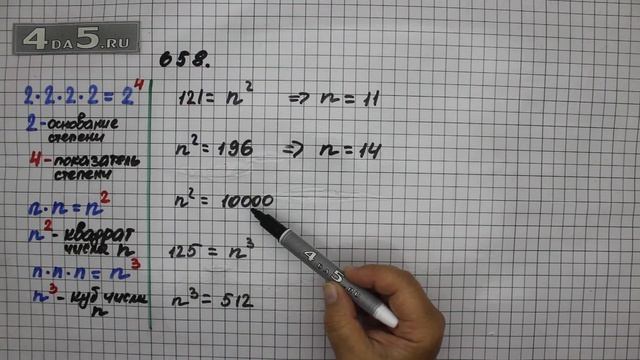 4 DA 5.RU
658.
2·2·2·2=2⁴
2-основание
степени
4-показатель
степени
n·n=n²
n²-квадрат
числа n
n·n·n=n³
n³-куб числа
n
121=n² ⇒ n=11
n²=196 ⇒ n=14
n²=10000
125=n³
n³=512
4 DA 5.RU